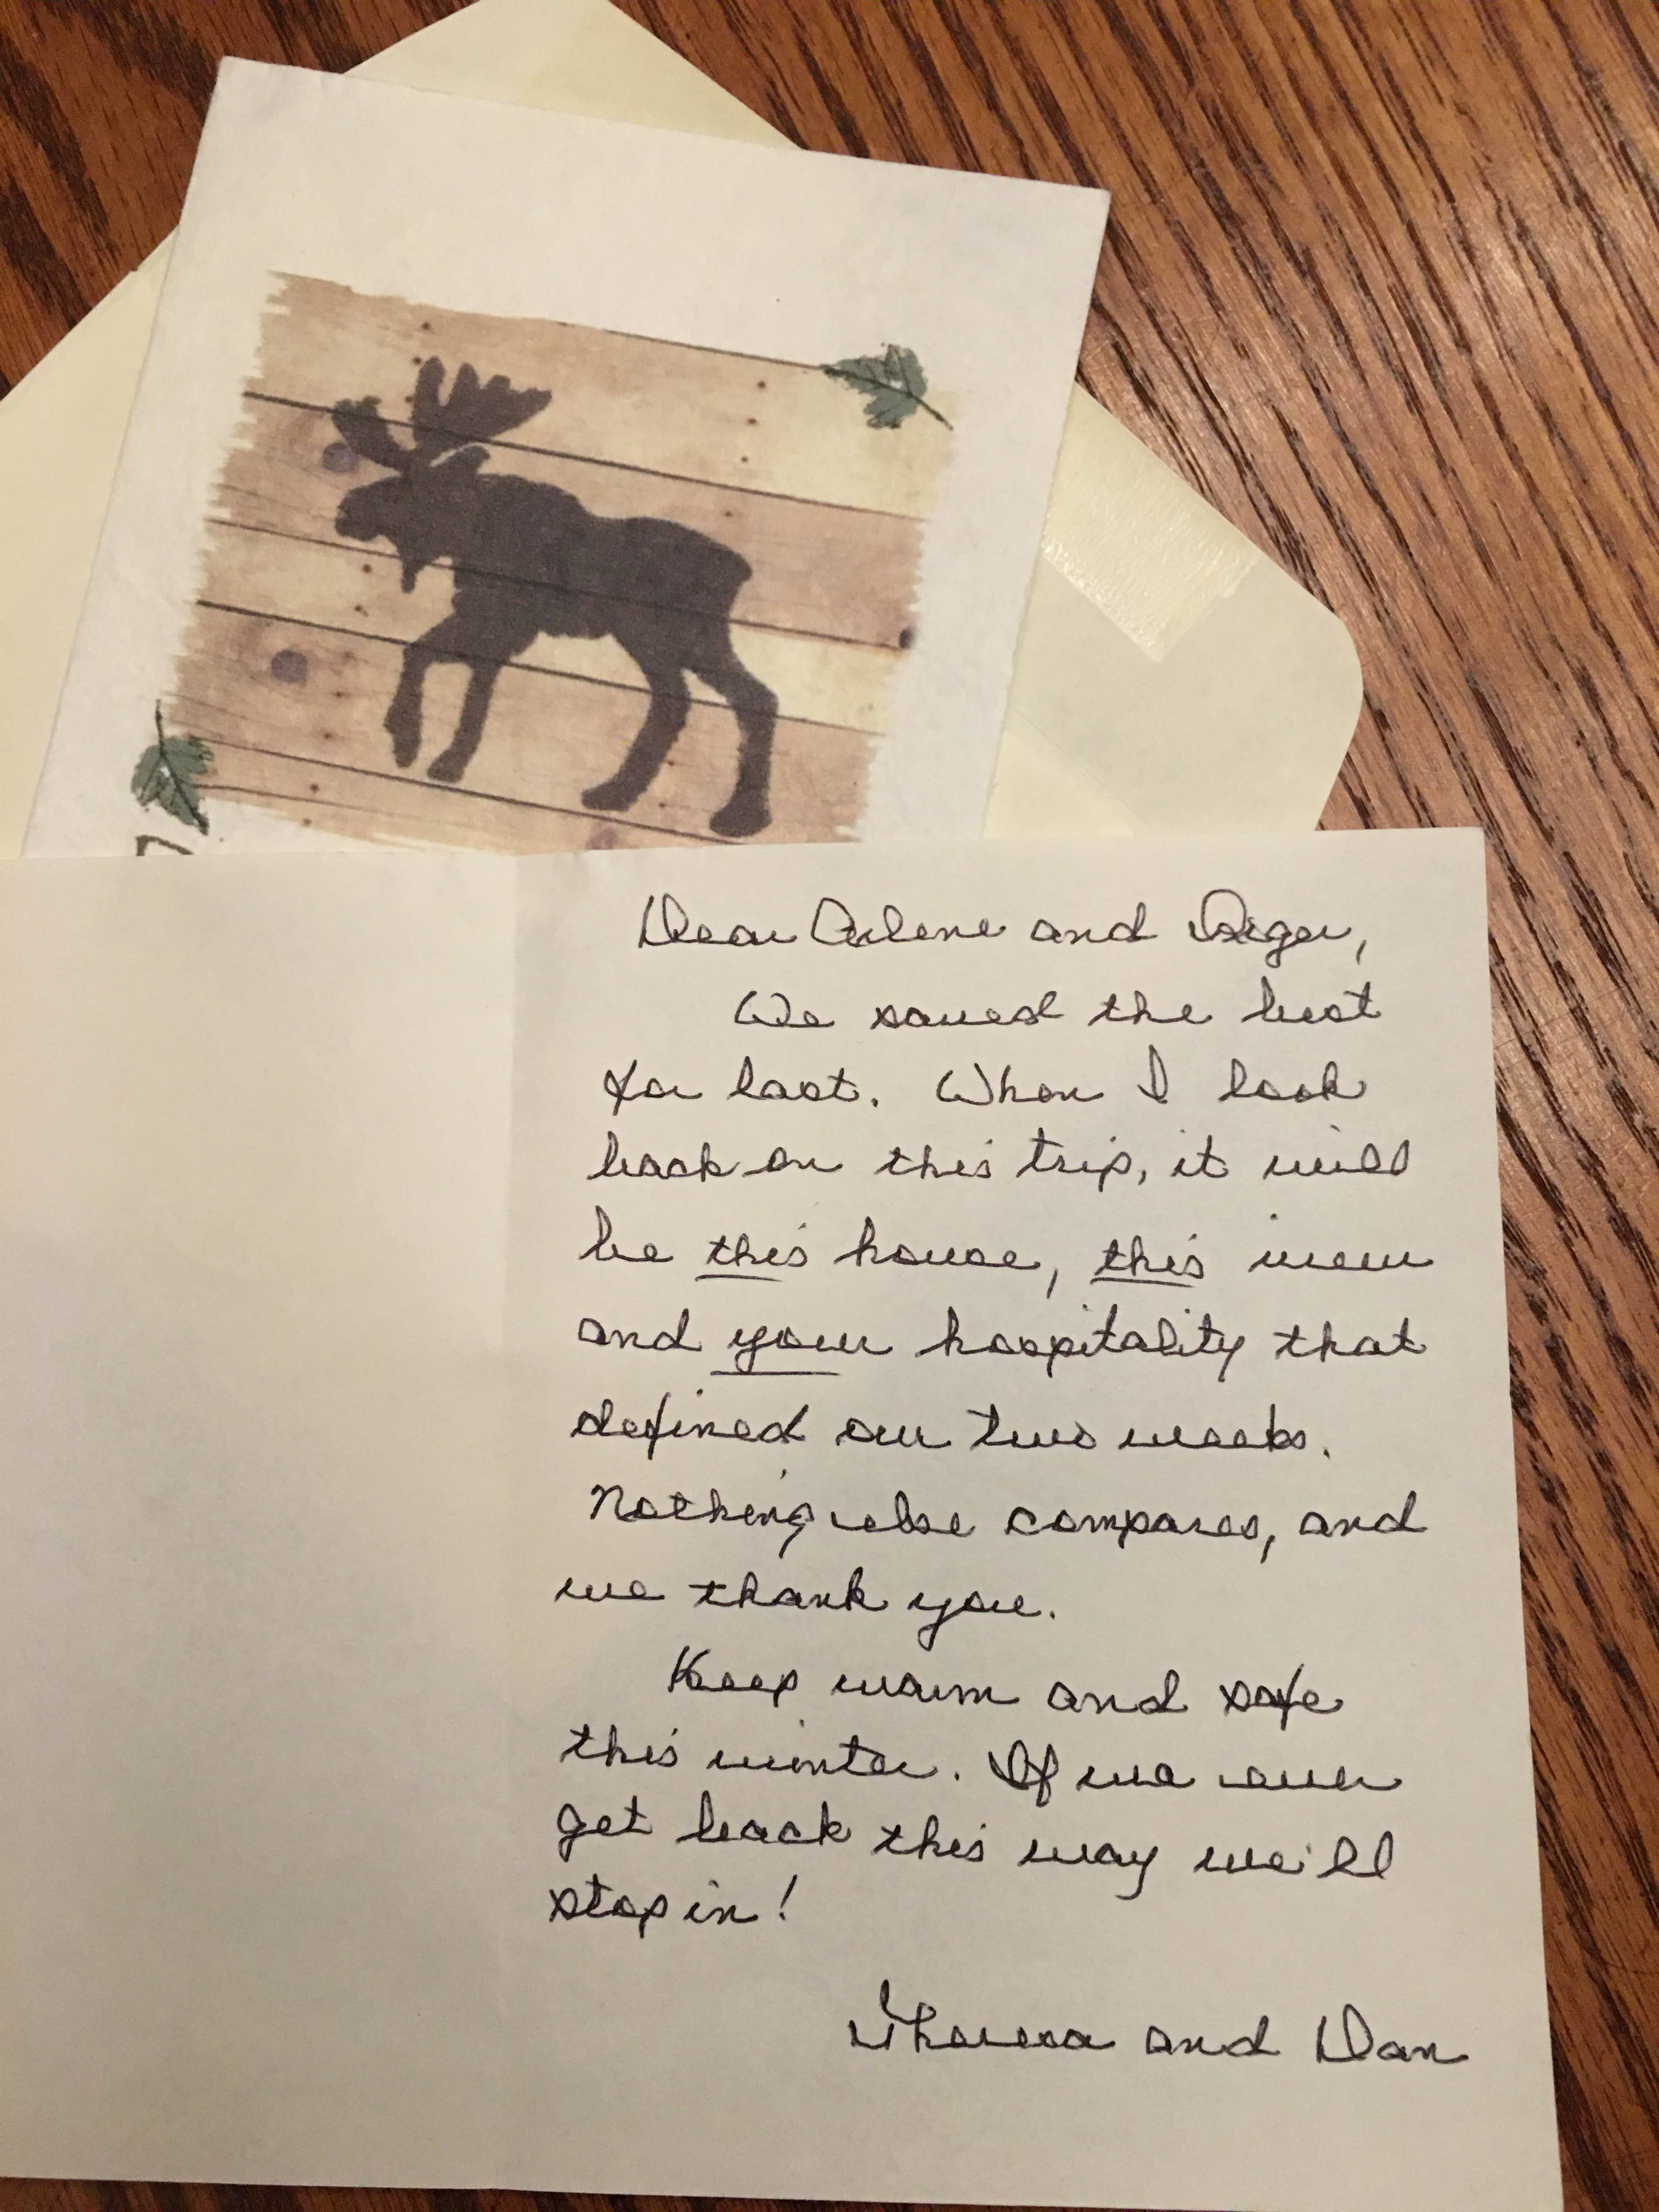 Dear Arlene and
We saved the best
for last. When I look
back on this trip, it will
be this house, this view
and your hospitality that
defined our two weeks.
Nothing else compares, and
we thank you.
Keep warm and safe
this winter. If we ever
get back this way we'll
stop in!
Theresa and Dan